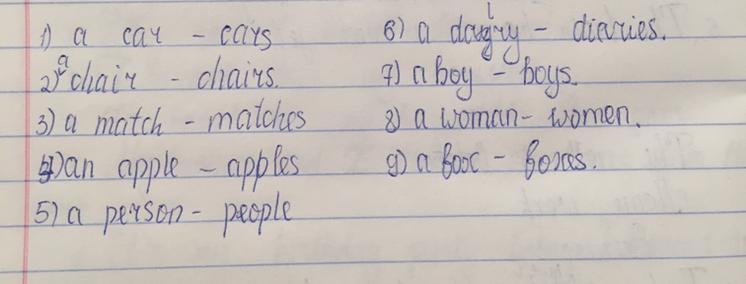 1) a car - cars
2) a chair - chairs.
3) a match - matches
4) an apple - apples
5) a person - people
6) a diary - diaries.
7) a boy - boys.
8) a woman - women.
9) a box - boxes.